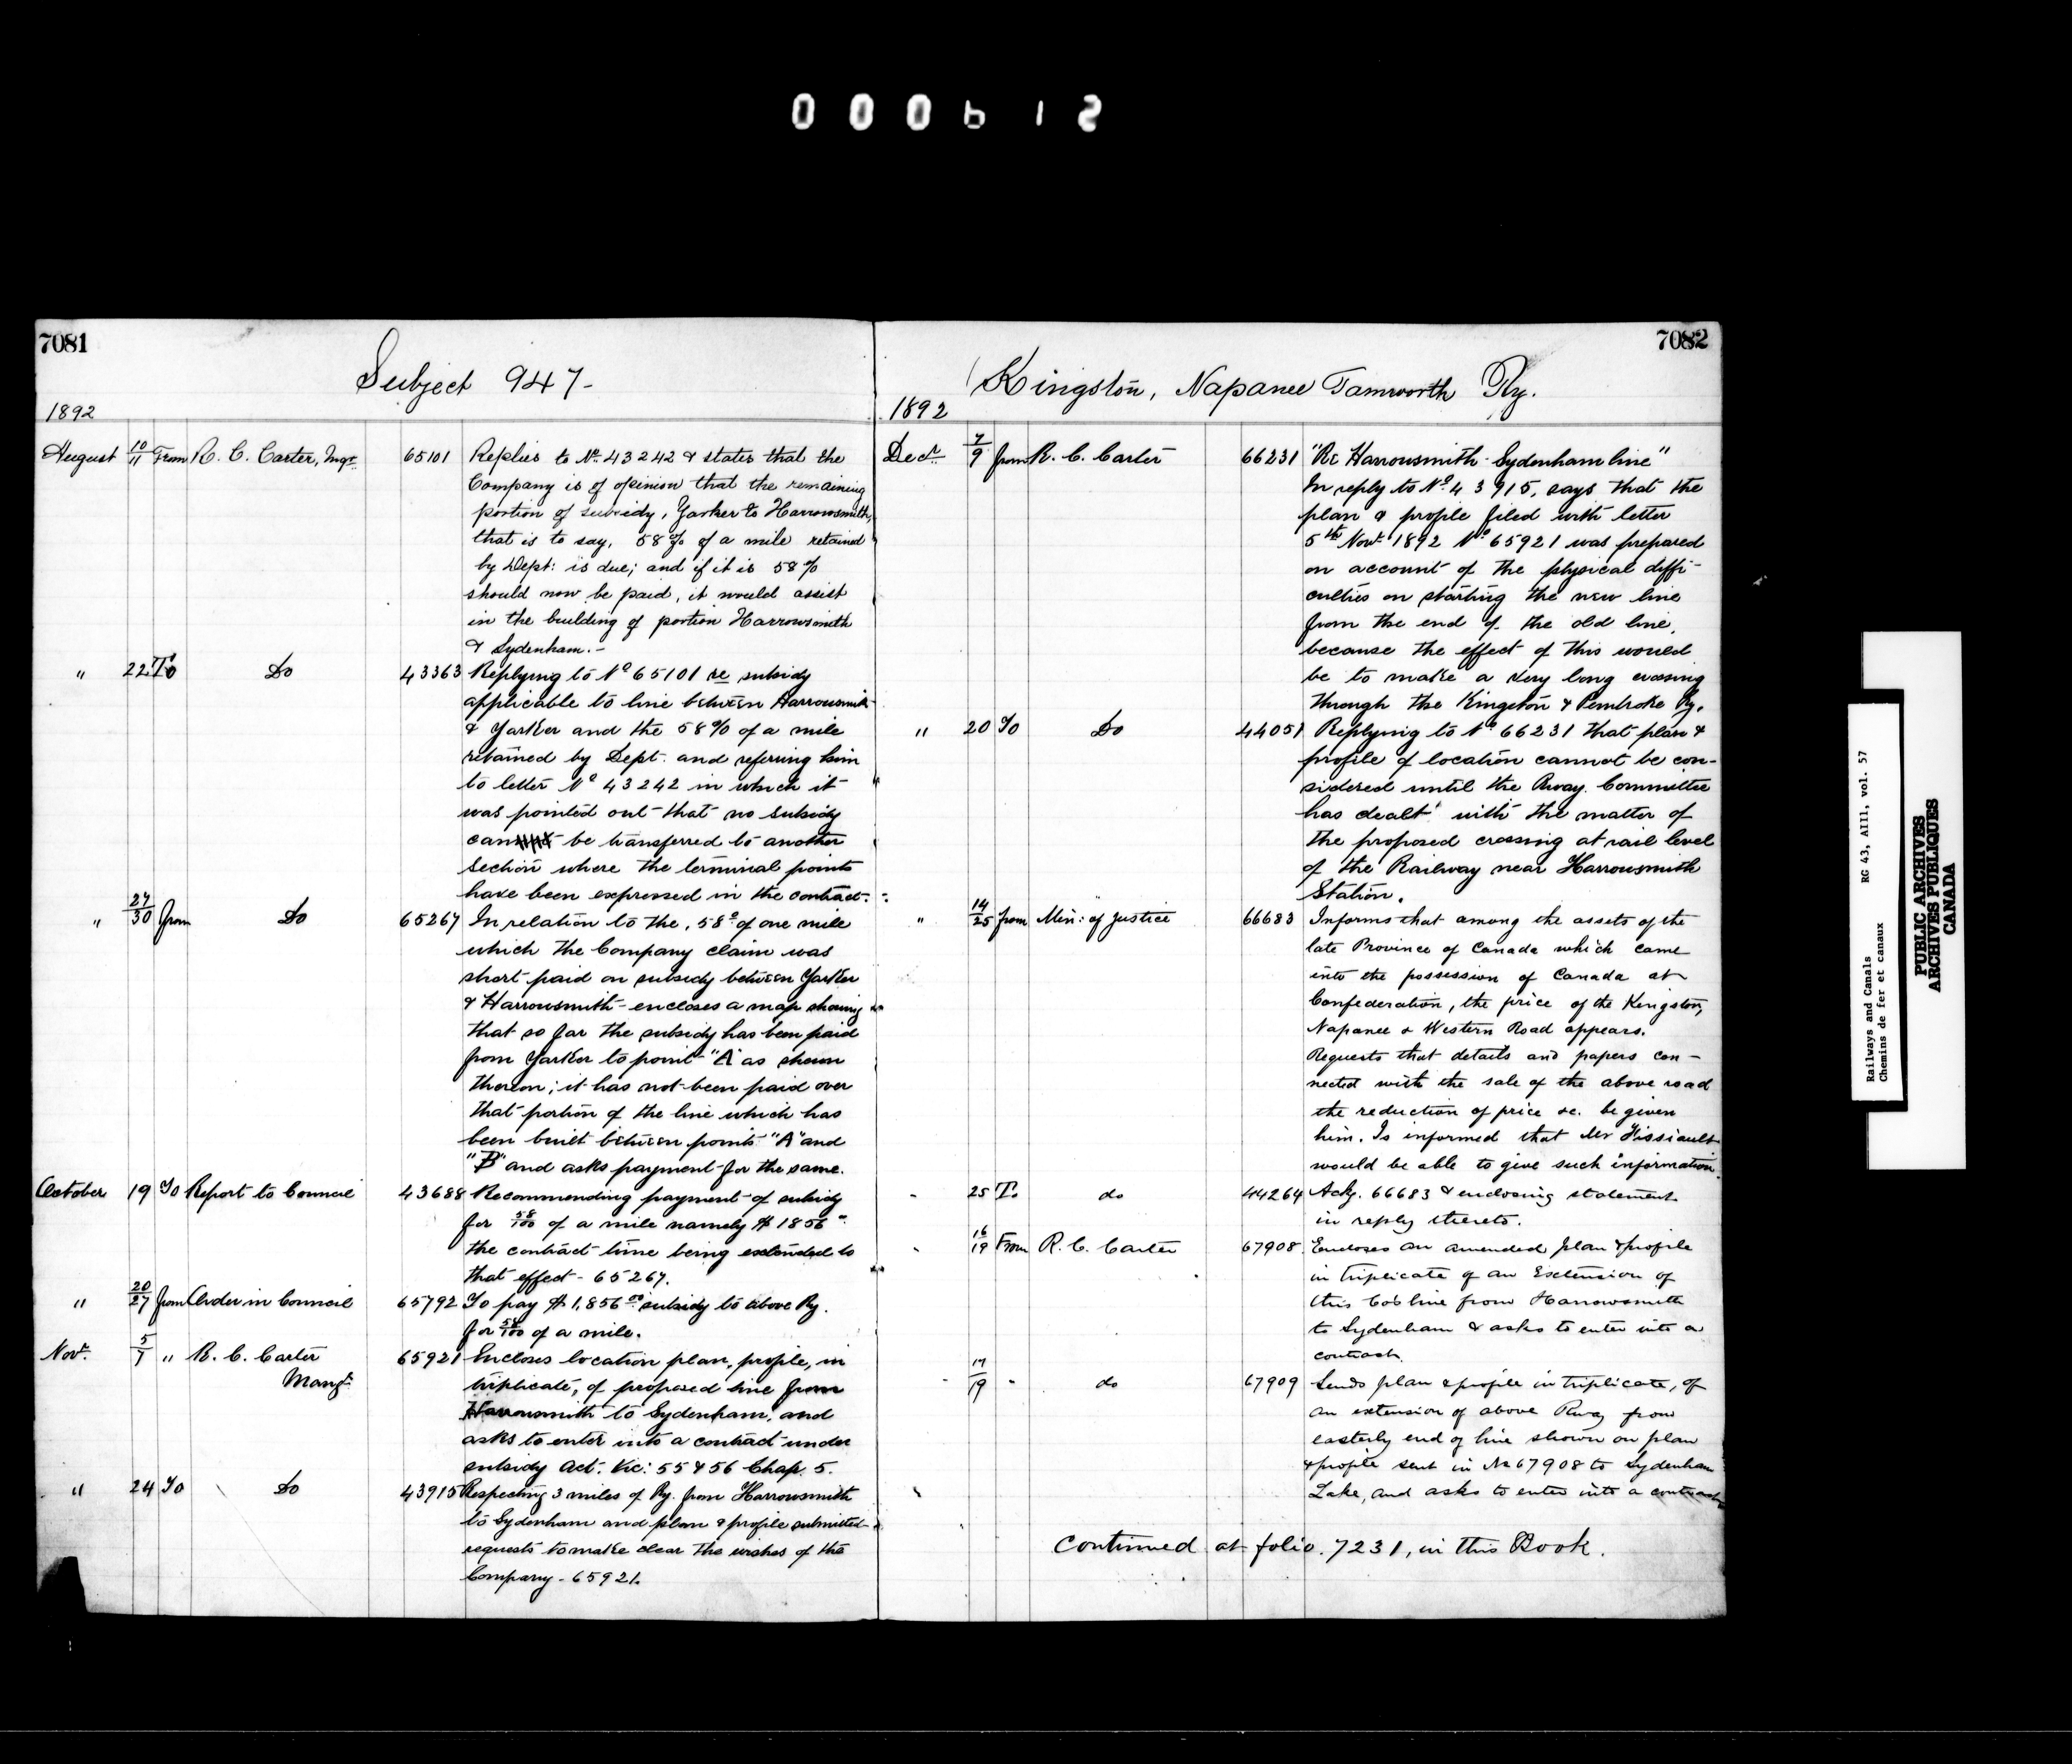 000612
7081
Subject 947-
1892
August 10/11 From R. C. Carter, Mngr. 65101 Replies to No. 43242 & states that the
Company is of opinion that the remaining
portion of subsidy, Yarker to Harrowsmith,
that is to say, 58% of a mile retained
by Dept: is due; and if it is 58%
should now be paid, it would assist
in the building of portion Harrowsmith
& Sydenham.-
" 22 To Do 43363 Replying to No 65101 re subsidy
applicable to line between Harrowsmith
& Yarker and the 58% of a mile
retained by Dept. and referring him
to letter No 43242 in which it
was pointed out that no subsidy
can be transferred to another
section where the terminal points
have been expressed in the contract.
" 27/30 from Do 65267 In relation to the .58 of one mile
which the Company claim was
short paid on subsidy between Yarker
& Harrowsmith - encloses a map showing
that so far the subsidy has been paid
from Yarker to point "A" as shewn
thereon; it has not been paid over
that portion of the line which has
been built between points "A" and
"B" and asks payment for the same.
October 19 To Report to Council 43688 Recommending payment of subsidy
for 58/100 of a mile namely $1856
the contract time being extended to
that effect - 65267.
" 20/27 from Order in Council 65792 To pay $1,856.00 subsidy to above Ry.
for 58/100 of a mile.
Novr. 5/7 " R. C. Carter 65921 Encloses location plan, profile, in
Mangr. triplicate, of proposed line from
Harrowsmith to Sydenham, and
asks to enter into a contract under
subsidy Act. Vic: 55 & 56 Chap. 5.
" 24 To Do 43915 Respecting 3 miles of Ry. from Harrowsmith
to Sydenham and plan & profile submitted
requests to make clear the wishes of the
Company - 65921.
7082
Kingston, Napanee Tamworth Ry.
1892
Decr. 7/9 from R. C. Carter 66231 "Re Harrowsmith-Sydenham line"
In reply to No. 43915, says that the
plan & profile filed with letter
5th Novr. 1892 No 65921 was prepared
on account of the physical diffi-
culties on starting the new line
from the end of the old line,
because the effect of this would
be to make a very long crossing
through the Kingston & Pembroke Ry.
" 20 To Do 44051 Replying to No 66231 that plan &
profile of location cannot be con-
sidered until the Rway. Committee
has dealt with the matter of
the proposed crossing at rail level
of the Railway near Harrowsmith
Station.
" 14/25 from Min: of Justice 66683 Informs that among the assets of the
late Province of Canada which came
into the possession of Canada at
Confederation, the price of the Kingston,
Napanee & Western Road appears.
Requests that details and papers con-
nected with the sale of the above road
the reduction of price &c. be given
him. Is informed that Mr
would be able to give such information.
" 25 To do 44264 Ackg. 66683 & enclosing statement
in reply thereto.
" 16/19 From R. C. Carter 67908 Encloses an amended plan & profile
in triplicate of an Extension of
this Co's line from Harrowsmith
to Sydenham & asks to enter into a
contract.
" 17/19 " do 67909 Sends plan & profile in triplicate, of
an extension of above Rway from
easterly end of line shown on plan
& profile sent in No 67908 to Sydenham
Lake, and asks to enter into a contract
Continued at folio 7231, in this Book.
Railways and Canals RG 43, AIII, vol. 57
Chemins de fer et canaux
PUBLIC ARCHIVES
ARCHIVES PUBLIQUES
CANADA